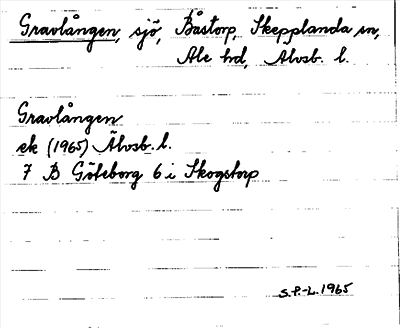 Gravlången, sjö, Båstorp, Skepplanda sn,
Ale hd, Älvsb. l.
Gravlången
ek (1965) Älvsb. l.
7 B Göteborg 6 i Skogstorp
S.P.-L. 1965